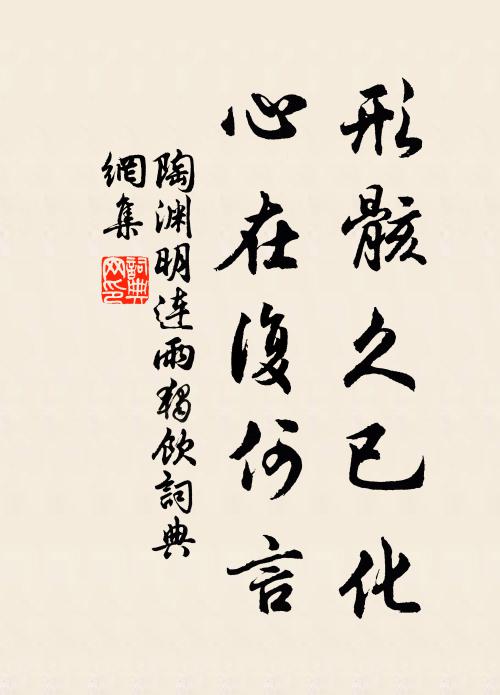 形骸久已化
心在復何言
陶渊明连雨獨饮詞典
網集
詞典網印